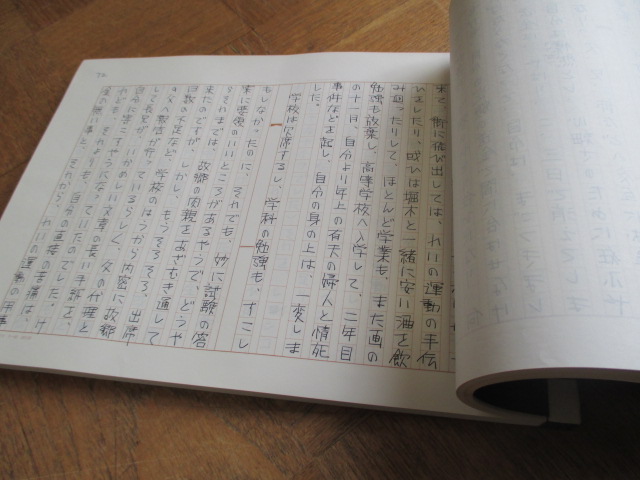 来て、街に飛び出しては、れいの運動の手伝
いをしたり、或いは堀木と一緒に安い酒を飲
み廻ったりして、ほとんど学業も、また画の
勉強も放棄し、高等学校へ入学して、二年目
の十一月、自分より年上の有夫の婦人と情死
事件などを起し、自分の身の上は、一変しま
した。
学校は欠席するし、学科の勉強も、すこし
もしなかったのに、それでも、妙に試験の答
案に要領のいいところがあるやうで、どうや
らそれまでは、故郷の肉親をあざむき通して
来たのですが、しかし、もうそろそろ、出席
日数の不足など、学校のはうから内密に故郷
の父へ報告が行っているらしく、父の代理と
して長兄が、いかめしい文章の長い手紙を、
自分に寄こすやうになっていたのでした。け
れども、それよりも、自分の直接の苦痛は、
金の無い事と、それから、れいの運動の用事
72